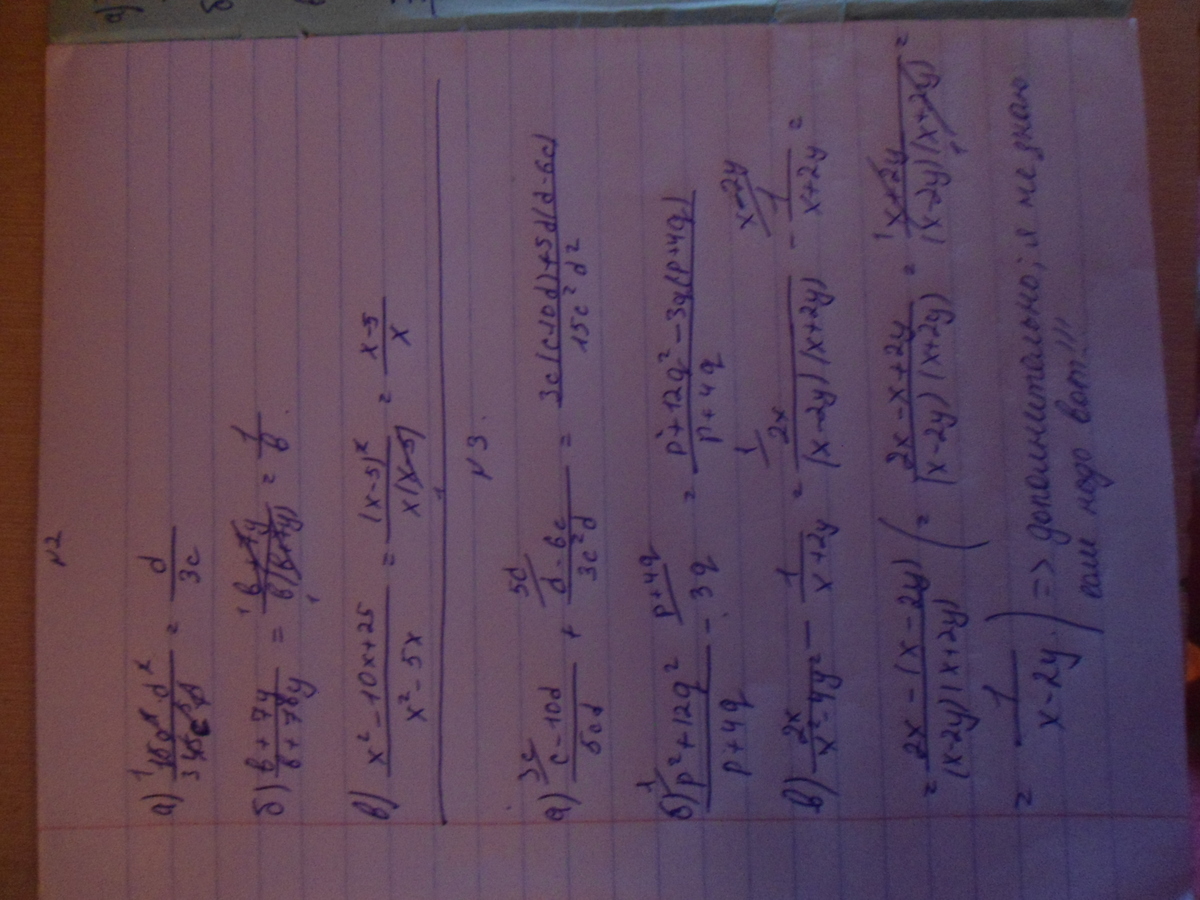 №2
а) = d/3c
б) (b + 7y)/ = (b + 7y)/(b(b+7y)) = 1/b
в) (x² - 10x + 25)/(x² - 5x) = (x - 5)²/(x(x - 5)) = (x - 5)/x
№3.
а) (c - 10d)/5cd + (d - 6c)/3c²d = (3c(c-10d)+5d(d-6c))/15c²d²
б) (p² + 12q²)/(p + 4q) - 3q = (p² + 12q² - 3q(p+4q))/(p + 4q)
в) 2x/(x² - 4y²) - 1/(x + 2y) = 2x/((x - 2y)(x + 2y)) - 1/(x + 2y) =
= (2x - (x - 2y))/((x - 2y)(x + 2y)) ( = (2x - x + 2y)/((x - 2y)(x + 2y)) = (x + 2y)/((x - 2y)(x + 2y)) =
= 1/(x - 2y) ) => дополнительно, я не знаю
если надо вот!!!